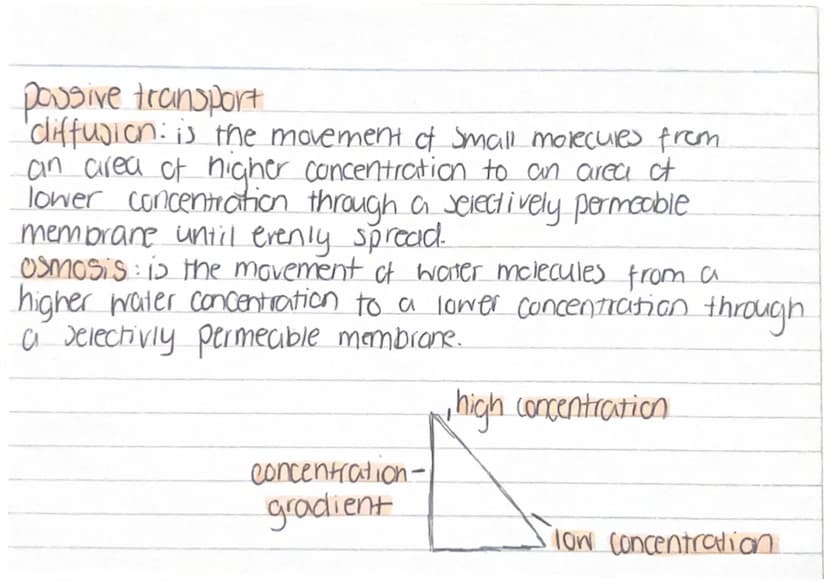 passive transport
diffusion: is the movement of small molecules from
an area of higher concentration to an area of
lower concentration through a selectively permeable
membrane until evenly spread.
osmosis: is the movement of water molecules from a
higher water concentration to a lower concentration through
a selectivly permeable membrane.
high concentration
concentration
gradient
low concentration